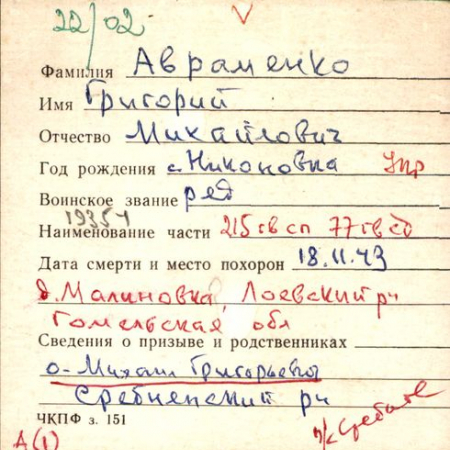 22/02.
Фамилия Авраменко
Имя Григорий
Отчество Михайлович
Год рождения с. Никоновка
Воинское звание ряд
19354
Наименование части 215 гв сп 77 гв сд
Дата смерти и место похорон 18.11.43
д. Малиновка, Лоевский рн
Гомельская обл
Сведения о призыве и родственниках
о- Михаил Григорьевич
Сребнянский рн
ЧКПФ з. 151
А(1)